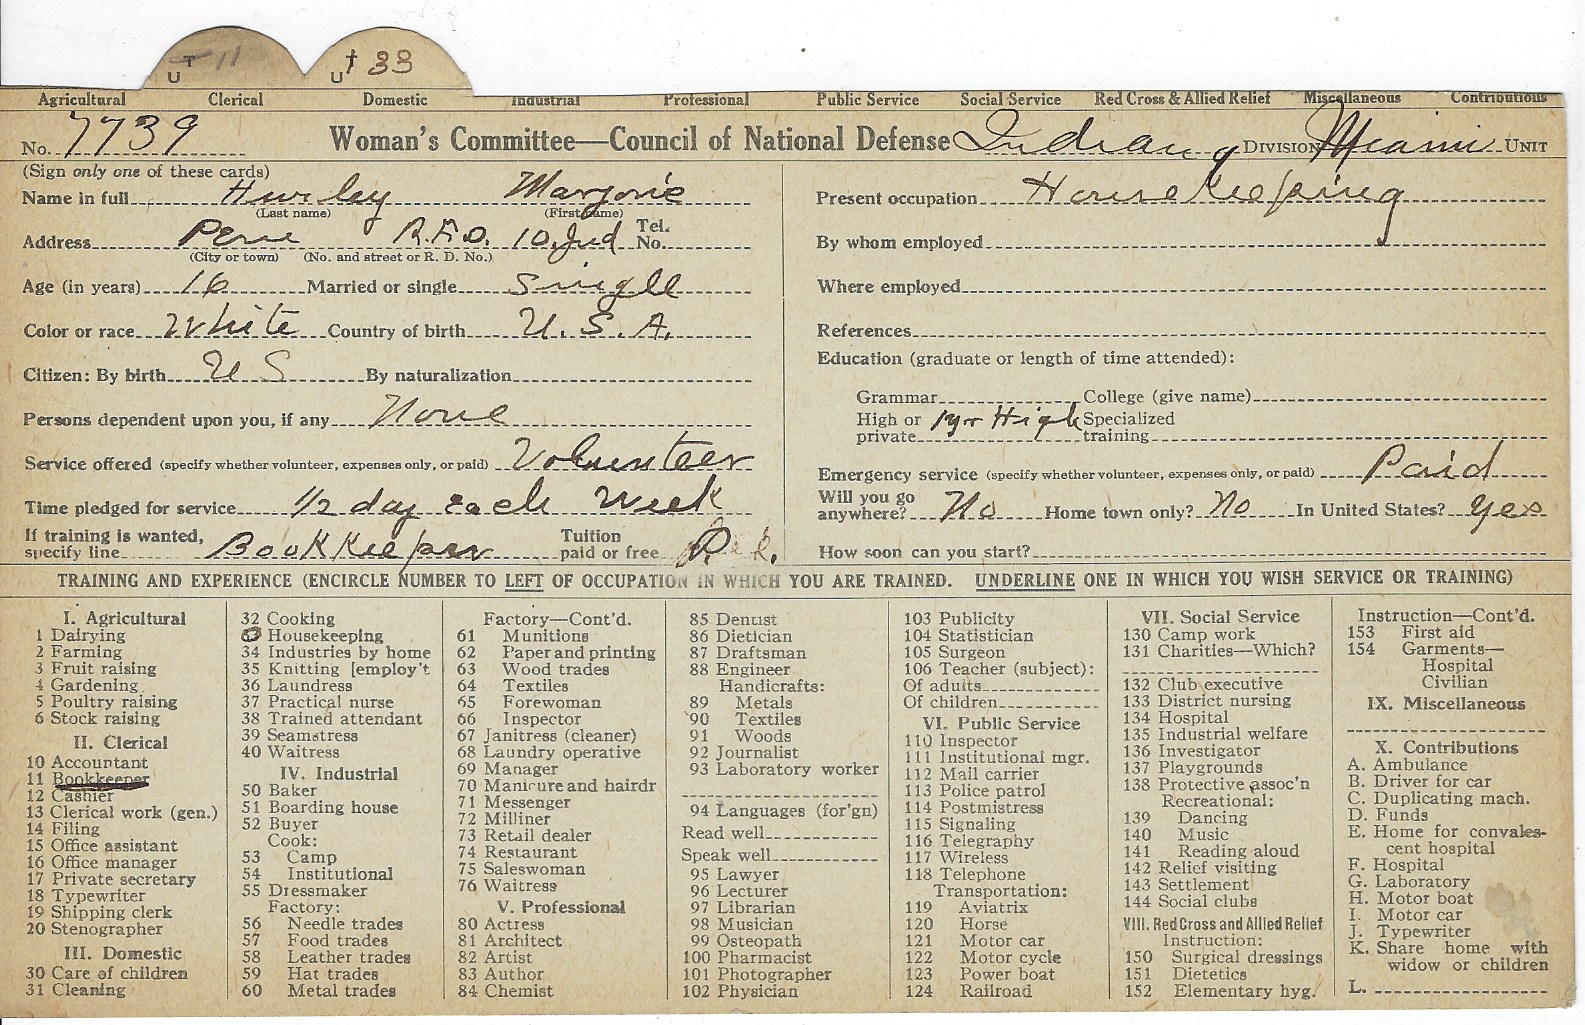 U T 11 U † 33
Agricultural Clerical Domestic Industrial Professional Public Service Social Service Red Cross & Allied Relief Miscellaneous Contributions
No. 7739 Woman's Committee—Council of National Defense Indiana DIVISION Miami UNIT
(Sign only one of these cards)
Name in full Hurley Marjorie
(Last name) (First name)
Address Peru R.F.D. 10, Ind Tel. No.
(City or town) (No. and street or R. D. No.)
Age (in years) 16 Married or single Single
Color or race White Country of birth U. S. A.
Citizen: By birth U S By naturalization
Persons dependent upon you, if any None
Service offered (specify whether volunteer, expenses only, or paid) Volunteer
Time pledged for service 1/2 day Each Week
If training is wanted,
specify line Bookkeeper Tuition
paid or free
Present occupation Housekeeping
By whom employed
Where employed
References
Education (graduate or length of time attended):
Grammar College (give name)
High or
private 1 yr High Specialized
training
Emergency service (specify whether volunteer, expenses only, or paid) Paid
Will you go
anywhere? No Home town only? No In United States? Yes
How soon can you start?
TRAINING AND EXPERIENCE (ENCIRCLE NUMBER TO LEFT OF OCCUPATION IN WHICH YOU ARE TRAINED. UNDERLINE ONE IN WHICH YOU WISH SERVICE OR TRAINING)
I. Agricultural
1 Dairying
2 Farming
3 Fruit raising
4 Gardening
5 Poultry raising
6 Stock raising
II. Clerical
10 Accountant
11 Bookkeeper
12 Cashier
13 Clerical work (gen.)
14 Filing
15 Office assistant
16 Office manager
17 Private secretary
18 Typewriter
19 Shipping clerk
20 Stenographer
III. Domestic
30 Care of children
31 Cleaning
32 Cooking
Housekeeping
34 Industries by home
35 Knitting [employ't
36 Laundress
37 Practical nurse
38 Trained attendant
39 Seamstress
40 Waitress
IV. Industrial
50 Baker
51 Boarding house
52 Buyer
Cook:
53 Camp
54 Institutional
55 Dressmaker
Factory:
56 Needle trades
57 Food trades
58 Leather trades
59 Hat trades
60 Metal trades
Factory—Cont'd.
61 Munitions
62 Paper and printing
63 Wood trades
64 Textiles
65 Forewoman
66 Inspector
67 Janitress (cleaner)
68 Laundry operative
69 Manager
70 Manicure and hairdr
71 Messenger
72 Milliner
73 Retail dealer
74 Restaurant
75 Saleswoman
76 Waitress
V. Professional
80 Actress
81 Architect
82 Artist
83 Author
84 Chemist
85 Dentist
86 Dietician
87 Draftsman
88 Engineer
Handicrafts:
89 Metals
90 Textiles
91 Woods
92 Journalist
93 Laboratory worker
94 Languages (for'gn)
Read well
Speak well
95 Lawyer
96 Lecturer
97 Librarian
98 Musician
99 Osteopath
100 Pharmacist
101 Photographer
102 Physician
103 Publicity
104 Statistician
105 Surgeon
106 Teacher (subject):
Of adults
Of children
VI. Public Service
110 Inspector
111 Institutional mgr.
112 Mail carrier
113 Police patrol
114 Postmistress
115 Signaling
116 Telegraphy
117 Wireless
118 Telephone
Transportation:
119 Aviatrix
120 Horse
121 Motor car
122 Motor cycle
123 Power boat
124 Railroad
VII. Social Service
130 Camp work
131 Charities—Which?
132 Club executive
133 District nursing
134 Hospital
135 Industrial welfare
136 Investigator
137 Playgrounds
138 Protective assoc'n
Recreational:
139 Dancing
140 Music
141 Reading aloud
142 Relief visiting
143 Settlement
144 Social clubs
VIII. Red Cross and Allied Relief
Instruction:
150 Surgical dressings
151 Dietetics
152 Elementary hyg.
Instruction—Cont'd.
153 First aid
154 Garments—
Hospital
Civilian
IX. Miscellaneous
X. Contributions
A. Ambulance
B. Driver for car
C. Duplicating mach.
D. Funds
E. Home for convales-
cent hospital
F. Hospital
G. Laboratory
H. Motor boat
I. Motor car
J. Typewriter
K. Share home with
widow or children
L.